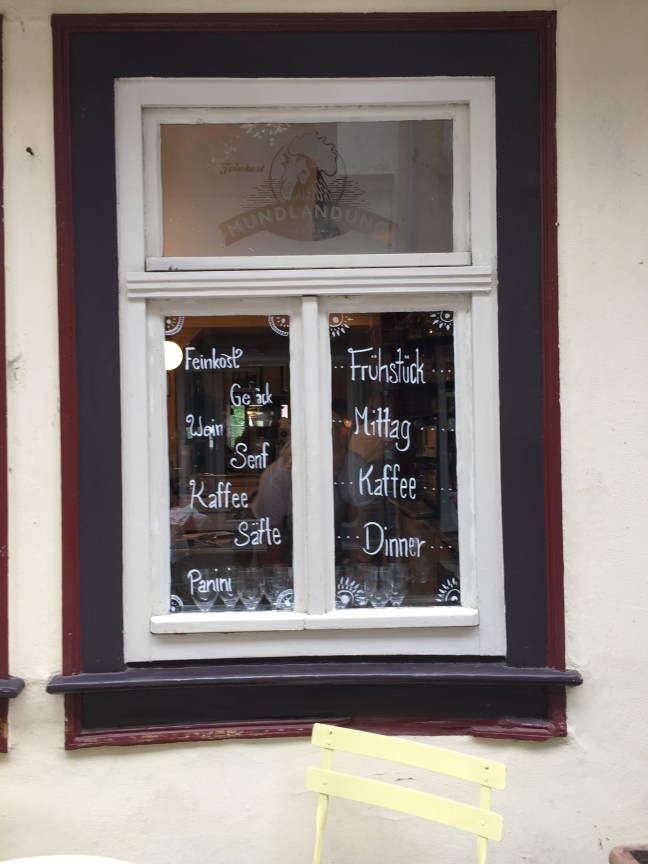 Feinkost
MUNDLANDUNG
Feinkost
Wein
Senf
Kaffee
Säfte
Panini
Frühstück
Mittag
Kaffee
Dinner